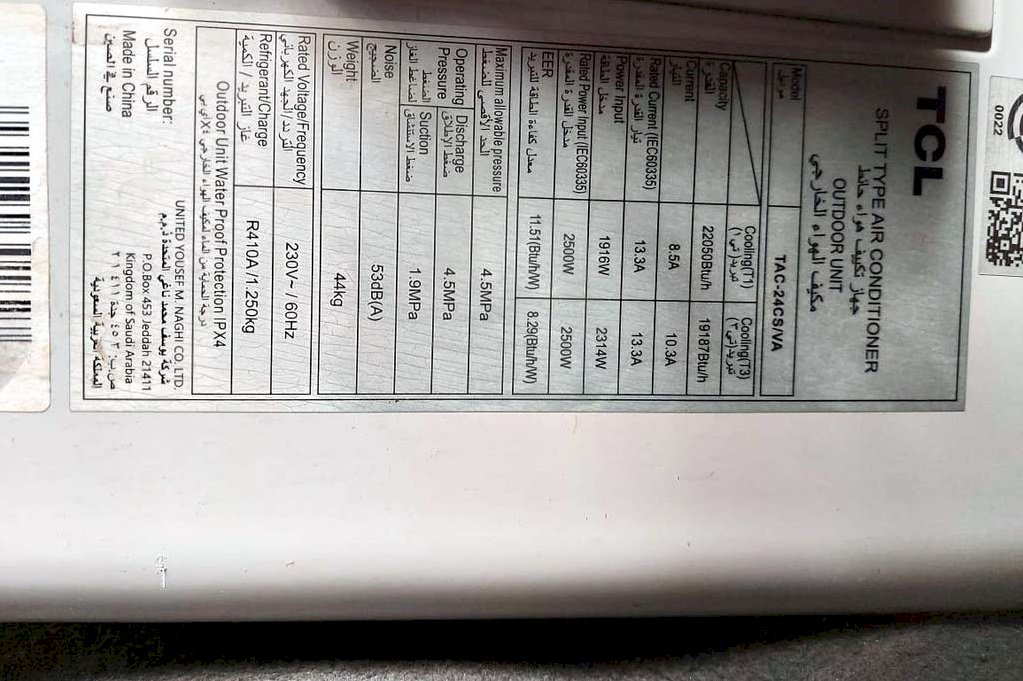 TCL
SPLIT TYPE AIR CONDITIONER
جهاز تكييف هواء حائط
OUTDOOR UNIT
مكيف الهواء الخارجي
Model موديل TAC-24CS/VA
Cooling(T1) Cooling(T3)
تبريد(تي١) تبريد(تي٣)
Capacity القدرة 22050Btu/h 19187Btu/h
Current التيار 8.5A 10.3A
Rated Current (IEC60335) 13.3A 13.3A
تيار القدرة المقدرة
Power Input مدخل الطاقة 1916W 2314W
Rated Power Input (IEC60335) 2500W 2500W
مدخل القدرة المقدرة
EER 11.51(Btu/h/W) 8.29(Btu/h/W)
معدل كفاءة الطاقة للتبريد
Maximum allowable pressure 4.5MPa
الحد الأقصى للضغط
Operating Pressure الضغط Discharge 4.5MPa
ضغط الإطلاق
Suction 1.9MPa
ضغط الاستنشاق
Noise الضجيج 53dB(A)
Weight الوزن 44kg
Rated Voltage/Frequency 230V~ / 60Hz
التردد/الجهد الكهربائي
Refrigerant/Charge R410A /1.250kg
غاز التبريد / الكمية
Outdoor Unit Water Proof Protection IPX4
درجة الحماية من الماء لمكيف الهواء الخارجي
Serial number:
الرقم المسلسل
Made in China
صنع في الصين
UNITED YOUSEF M. NAGHI CO. LTD
شركة يوسف محمد ناغي المتحدة
P.O.Box 453 Jeddah 21411
Kingdom of Saudi Arabia
ص.ب: ٤٥٣ جدة ٢١٤١١
المملكة العربية السعودية
0022